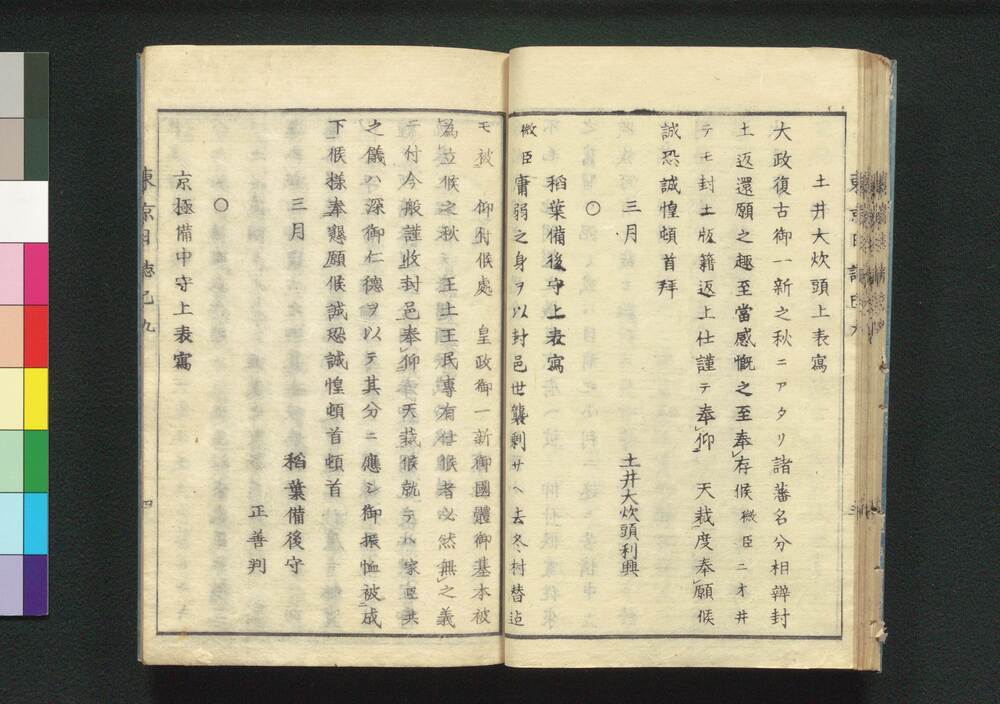 土井大炊頭上表寫
大政復古御一新之秋ニアタリ諸藩名分相辨封
土返還願之趣至當感慨之至奉存候微臣ニオ井
テモ封土版籍返上仕謹テ奉仰 天裁度奉願候
誠恐誠惶頓首拜
三月 土井大炊頭利興
〇
稻葉備後守上表寫
微臣庸弱之身ヲ以封邑世襲剰サヘ去冬村替迠
モ被 仰付候處 皇政御一新御國體御基本被
為立候之秋 王土王民專有仕候者必然無之義
ニ付今般謹收封邑奉仰 天裁候就テハ家臣共
之儀ハ深御仁德ヲ以テ其分ニ應シ御振恤被成
下候樣奉懇願候誠恐誠惶頓首頓首
三月 稻葉備後守
正善判
〇
京極備中守上表寫
東京日誌己九 四